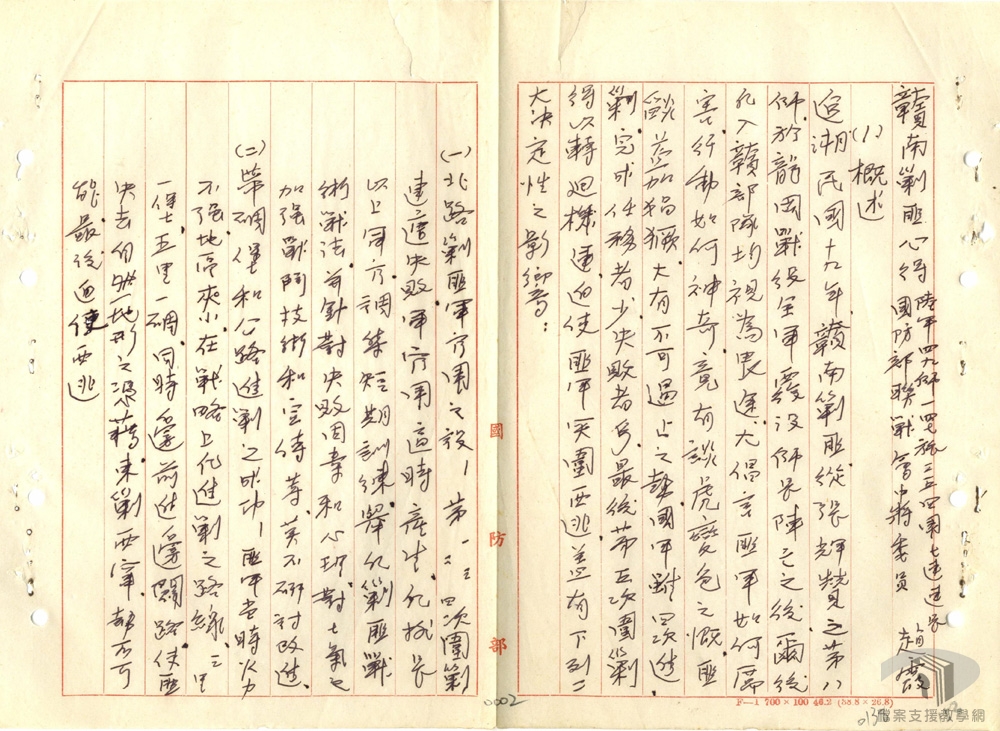 贛南剿匪心得
陸軍四九師一四七旅二五四團七連連長
國防部聯戰會中將委員 趙霞
(1)概述
追溯民國十九年贛南剿匪從張輝瓚之第十八
師於龍岡戰役全軍覆沒師長陣亡之後爾後
凡入贛部隊均視為畏途尤倡言匪軍如何厲
害行動如何神奇竟有談虎變色之慨匪
燄益加猖獗大有不可遏止之勢國軍對四次進
剿完成任務者少失敗者多最後第五次圍剿
得以轉迴機運迫使匪軍突圍西逃蓋有下列二
大決定性之影響:
(一)北路剿匪軍官團之設-第一二三四次圍剿
連遭失敗軍官團適時產生凡校長
以上軍官調集短期訓練舉凡剿匪戰
術戰法並針對失敗因素和心理對士氣之
加強戰鬥技術和宣傳等莫不研討改進
(二)第碉堡和公路進剿之成功-匪軍當時火力
不強地區狹小在戰略上凡進剿之路線三里
一堡五里一碉同時邊前進邊闢路使匪
失去何雖地形之憑藉東剿西竄都不可
能最後迫使西逃
國防部
0002
F—1 700×100 46.2 (53.8×26.8)
檔案支援教學網